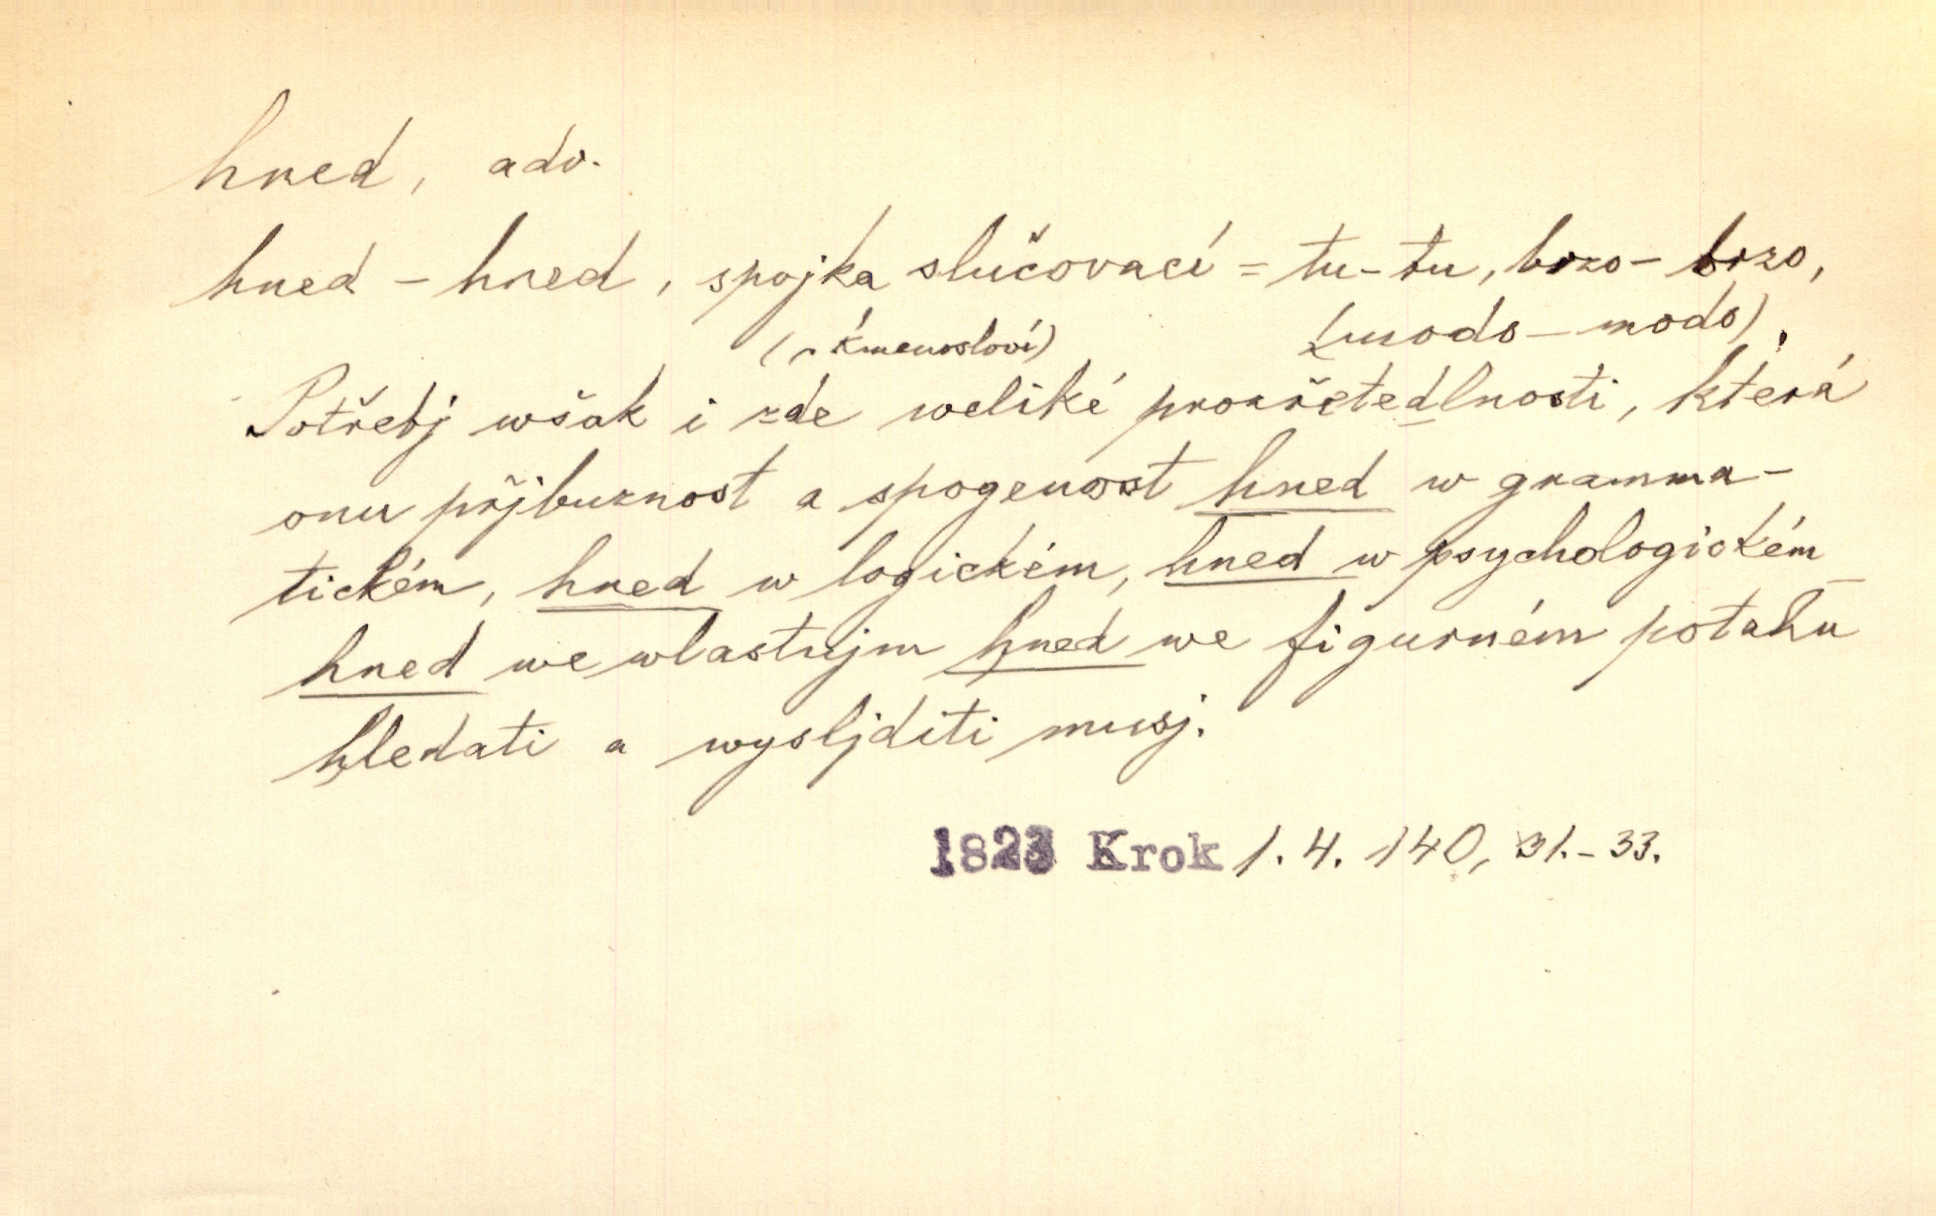 hned, adv.
hned – hned, spojka slučovací = tu – tu, brzo – brzo,
(modo – modo).
(v kmenosloví)
Potřebj wšak i zde weliké prozřetedlnosti, která
onu přjbuznost a spogenost hned w gramma-
tickém, hned w logickém, hned w psychologickém
hned we wlastnjm hned we figurném potahu
hledati a wysljditi musj.
1823 Krok 1. 4. 140, 31.–33.